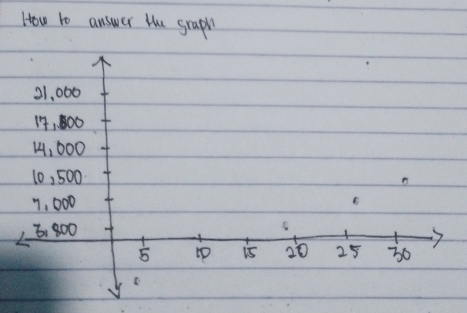 How to answer the graph
21,000
17,500
14,000
10,500
7,000
3,500
5 10 15 20 25 30